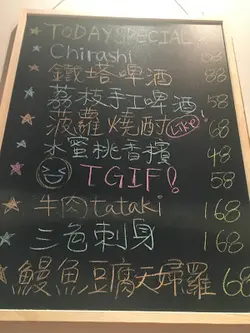 TODAY SPECIAL
Chirashi 88
鐵塔啤酒 88
荔枝手工啤酒 58
菠蘿燒酎 Like! 68
水蜜桃香檳 48
TGIF! 58
牛肉tataki 168
三色刺身 168
鰻魚豆腐天婦羅 68